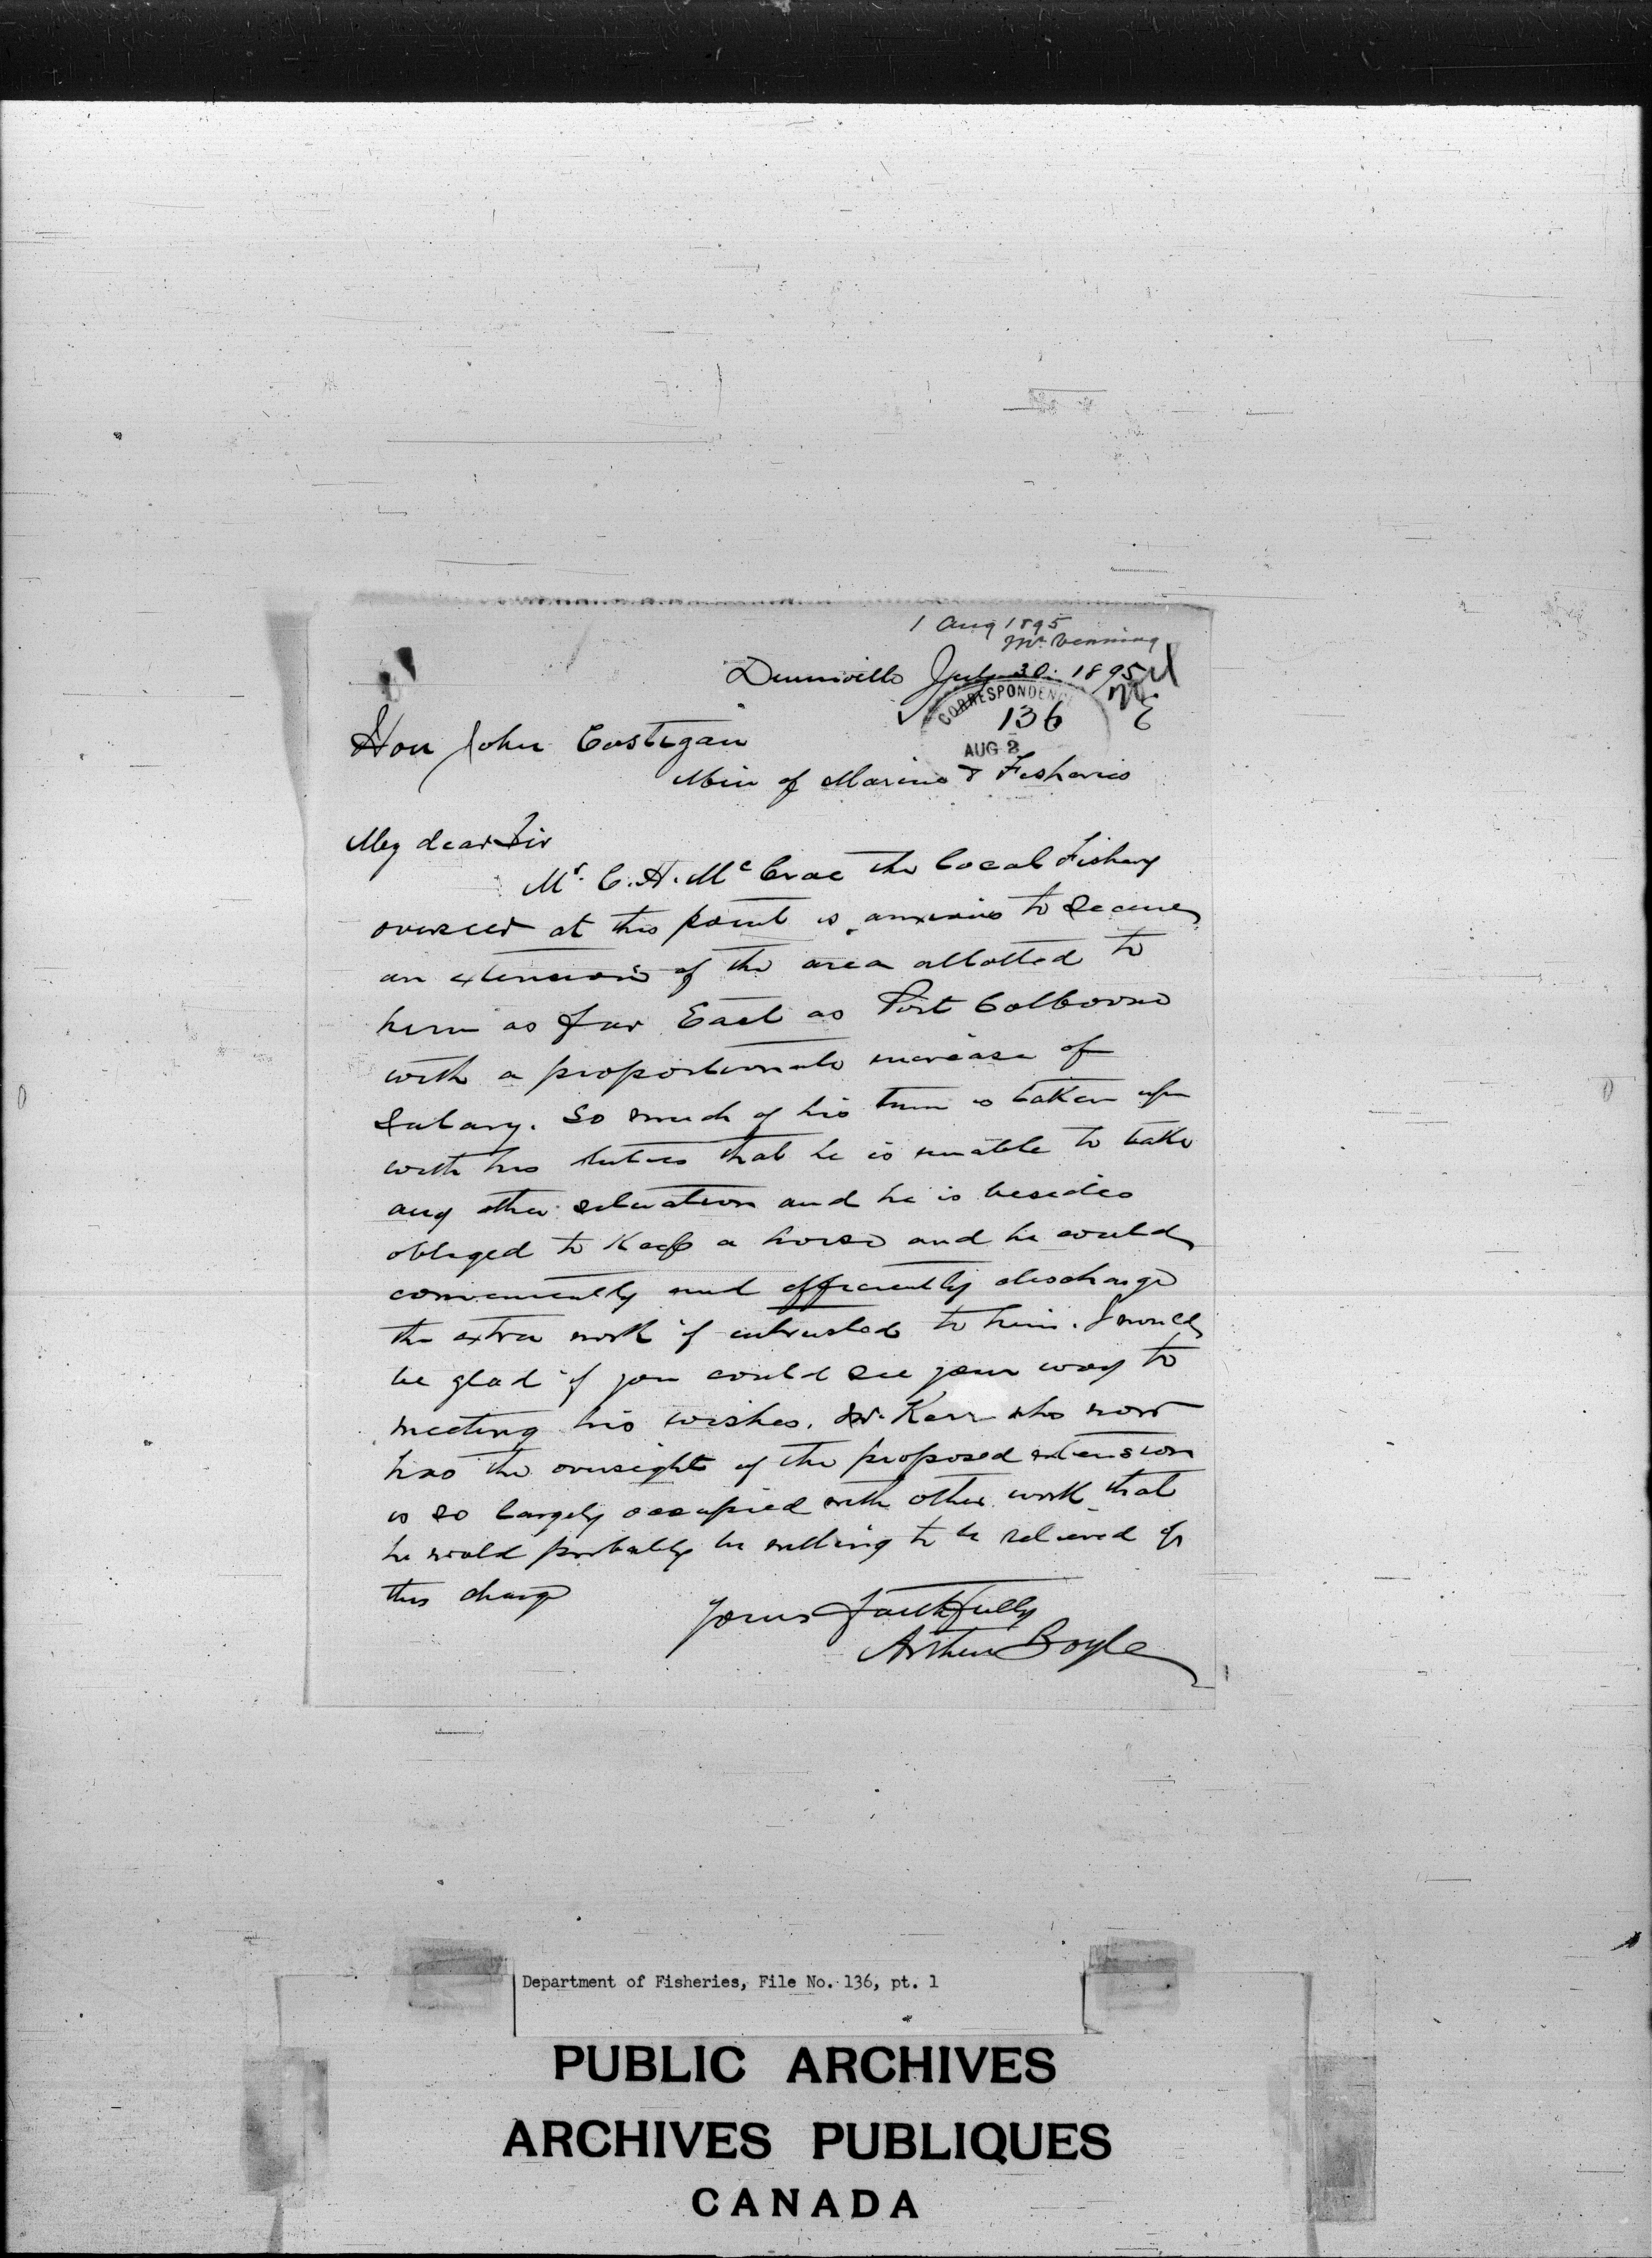 1 Aug 1895
Mr Venning
Dunnville July 30. 1895
CORRESPONDENC
136
AUG 2
Hon John Costigan
Min of Marine & Fisheries
My dear Sir
Mr. C. H. McCrae the local Fishery
overseer at this point is anxious to secure
an extension of the area allotted to
him as far East as Port Colborne
with a proportionate increase of
salary. So much of his time is taken up
with his duties that he is unable to take
any other situation and he is besides
obliged to keep a horse and he could
conveniently and efficiently discharge
the extra work if entrusted to him. I would
be glad if you could see your way to
meeting his wishes. Mr Kerr who now
has the oversight of the proposed extension
is so largely occupied with other work that
he would probably be willing to be relieved of
this charge
Yours faithfully
Arthur Boyle
Department of Fisheries, File No. 136, pt. 1
PUBLIC ARCHIVES
ARCHIVES PUBLIQUES
CANADA